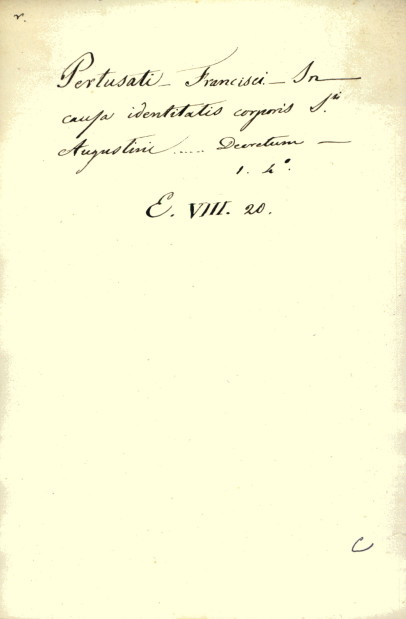 r.
Pertusati – Francisci – In
causa identitatis corporis S.ti
Augustini ..... Decretum –
1. 4.°
E. VIII. 20.
C